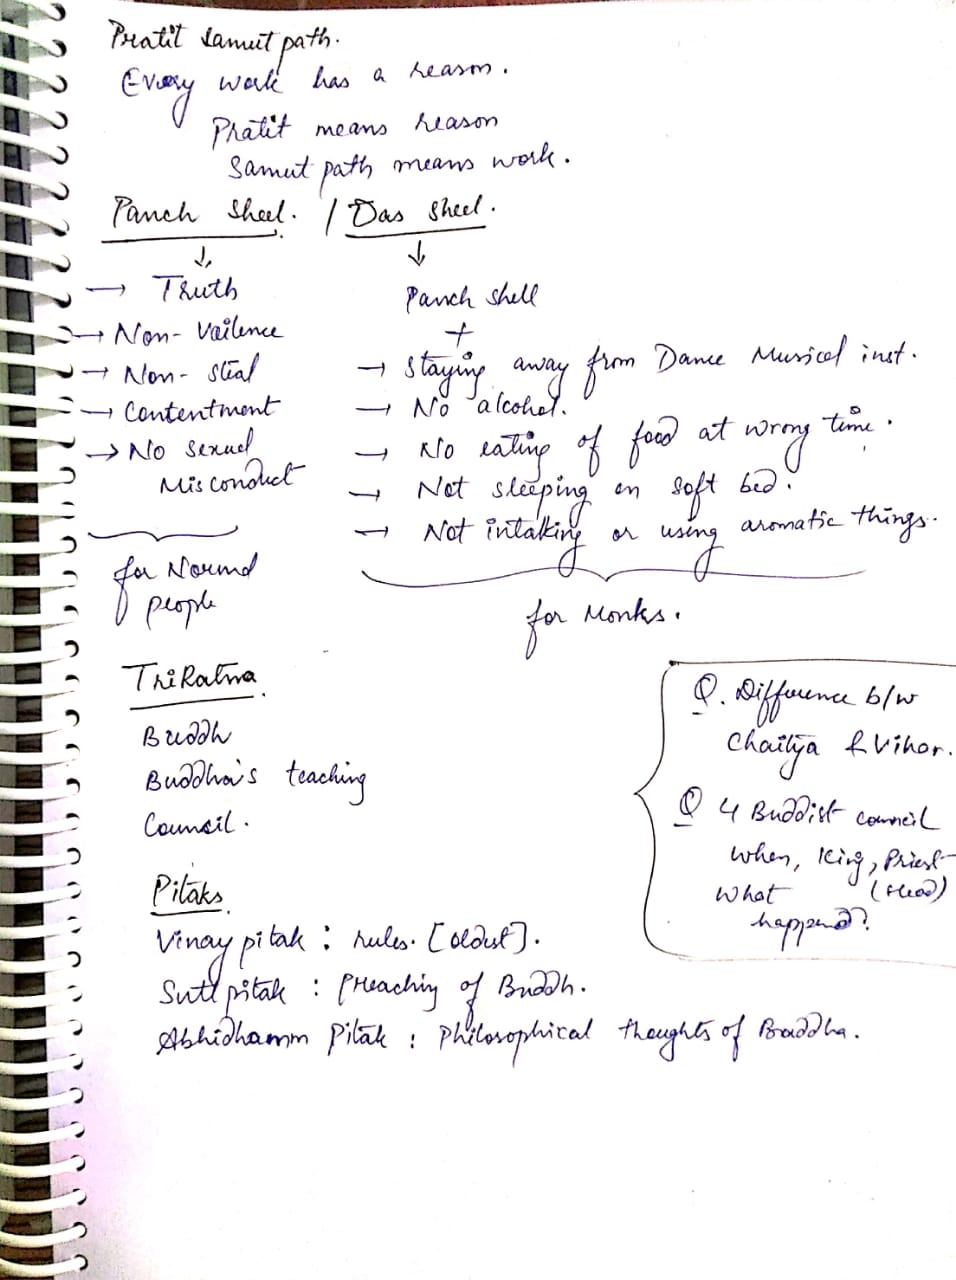 Pratit Samut path.
Every work has a reason.
Pratit means reason
Samut path means work.
Panch Sheel. / Das Sheel.
↓ ↓
→ Truth
→ Non-Vailence
→ Non-steal
→ Contentment
→ No sexual
Misconduct
for Normal
people
Panch shell
+
→ Staying away from Dance Musical inst.
→ No alcohol.
→ No eating of food at wrong time.
→ Not sleeping on soft bed.
→ Not intalking or using aromatic things.
for Monks.
TriRatna
Buddh
Buddha's teaching
Council.
Q. Difference b/w
Chaitya & Vihar.
Q 4 Buddist council
When, King, Priest
What (Head)
happened?
Pitaks
Vinay pitak : rules. [oldest].
Sutt pitak : Preaching of Buddh.
Abhidhamm Pitak : Philosophical thoughts of Buddha.